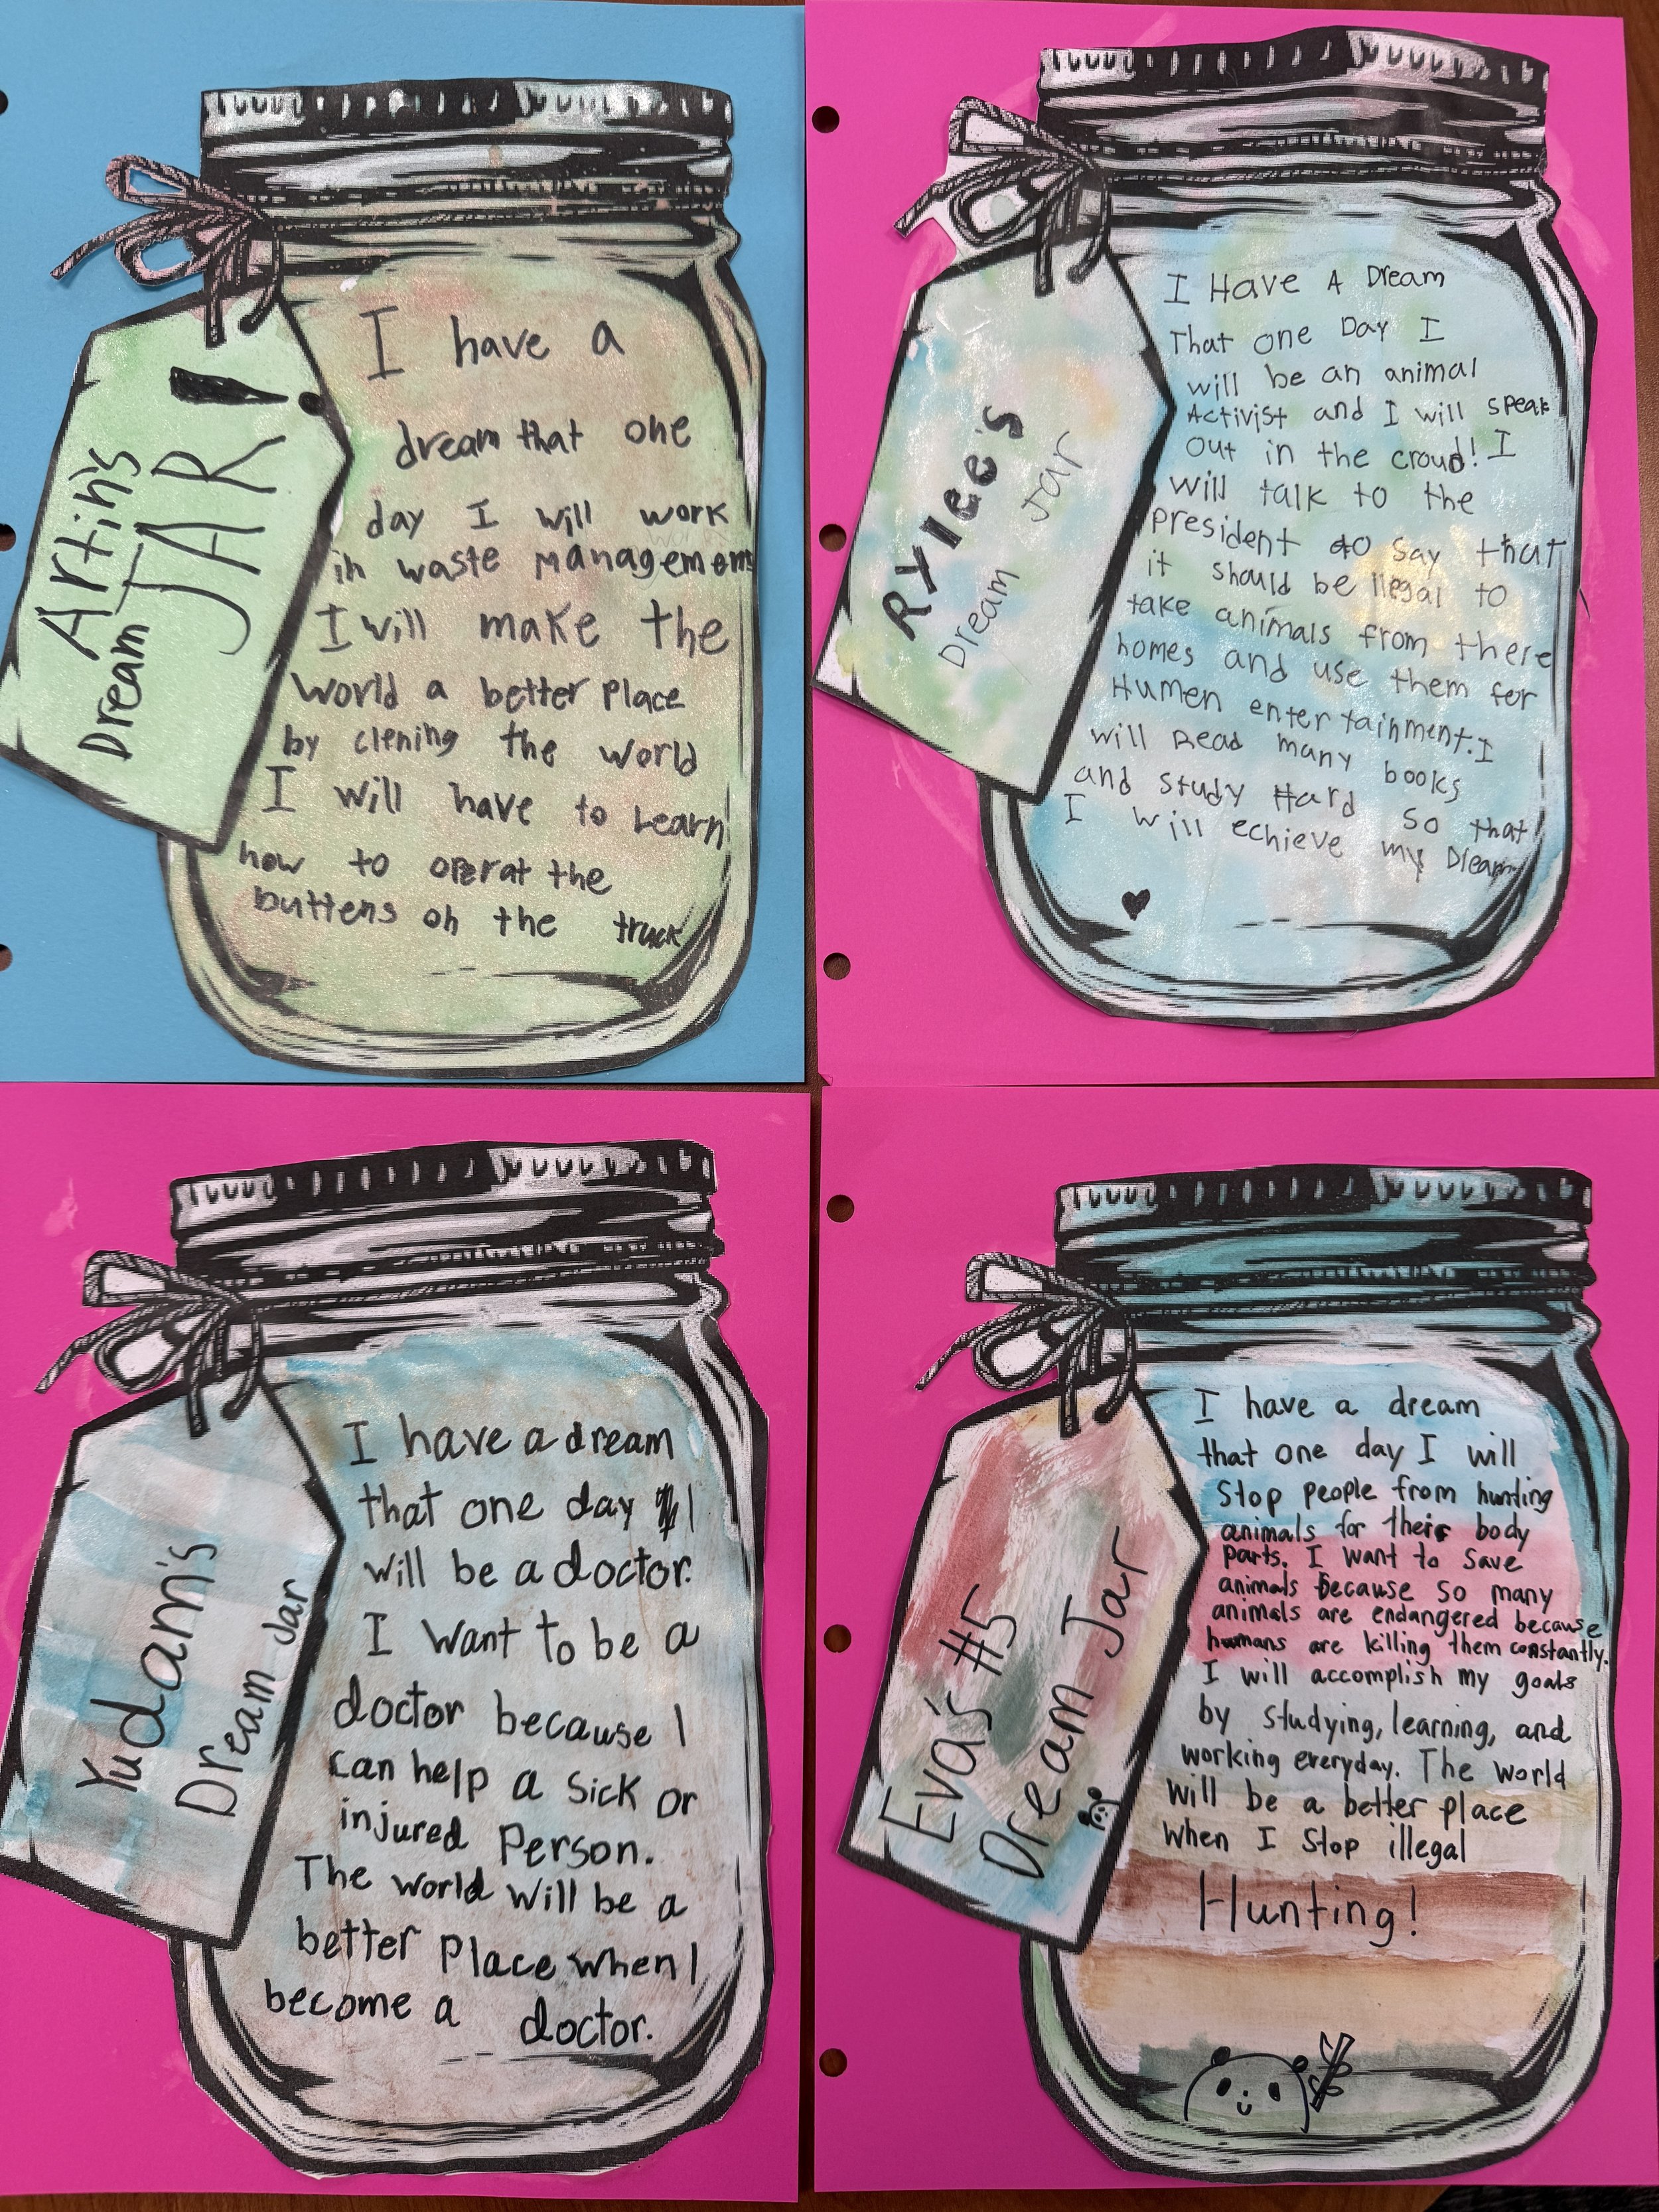 Artin's
Dream JAR!
I have a
dream that one
day I will work
in waste management
I will make the
World a better Place
by clening the world
I will have to Learn
how to operat the
buttens on the truck
Rylee's
Dream Jar
I Have A Dream
That one Day I
will be an animal
Activist and I will speak
out in the croud! I
will talk to the
president to say that
it should be llegal to
take animals from there
homes and use them for
Humen entertainment. I
will Read many books
and study Hard so that
I will echieve my Dream
Yudam's
Dream Jar
I have a dream
that one day I
will be a doctor.
I want to be a
doctor because I
can help a sick or
injured Person.
The world will be a
better Place when I
become a doctor.
Eva's #5
Dream Jar
I have a dream
that one day I will
Stop people from hunting
animals for their body
parts. I want to save
animals because so many
animals are endangered because
humans are killing them constantly.
I will accomplish my goals
by studying, learning, and
working everyday. The world
will be a better place
when I stop illegal
Hunting!